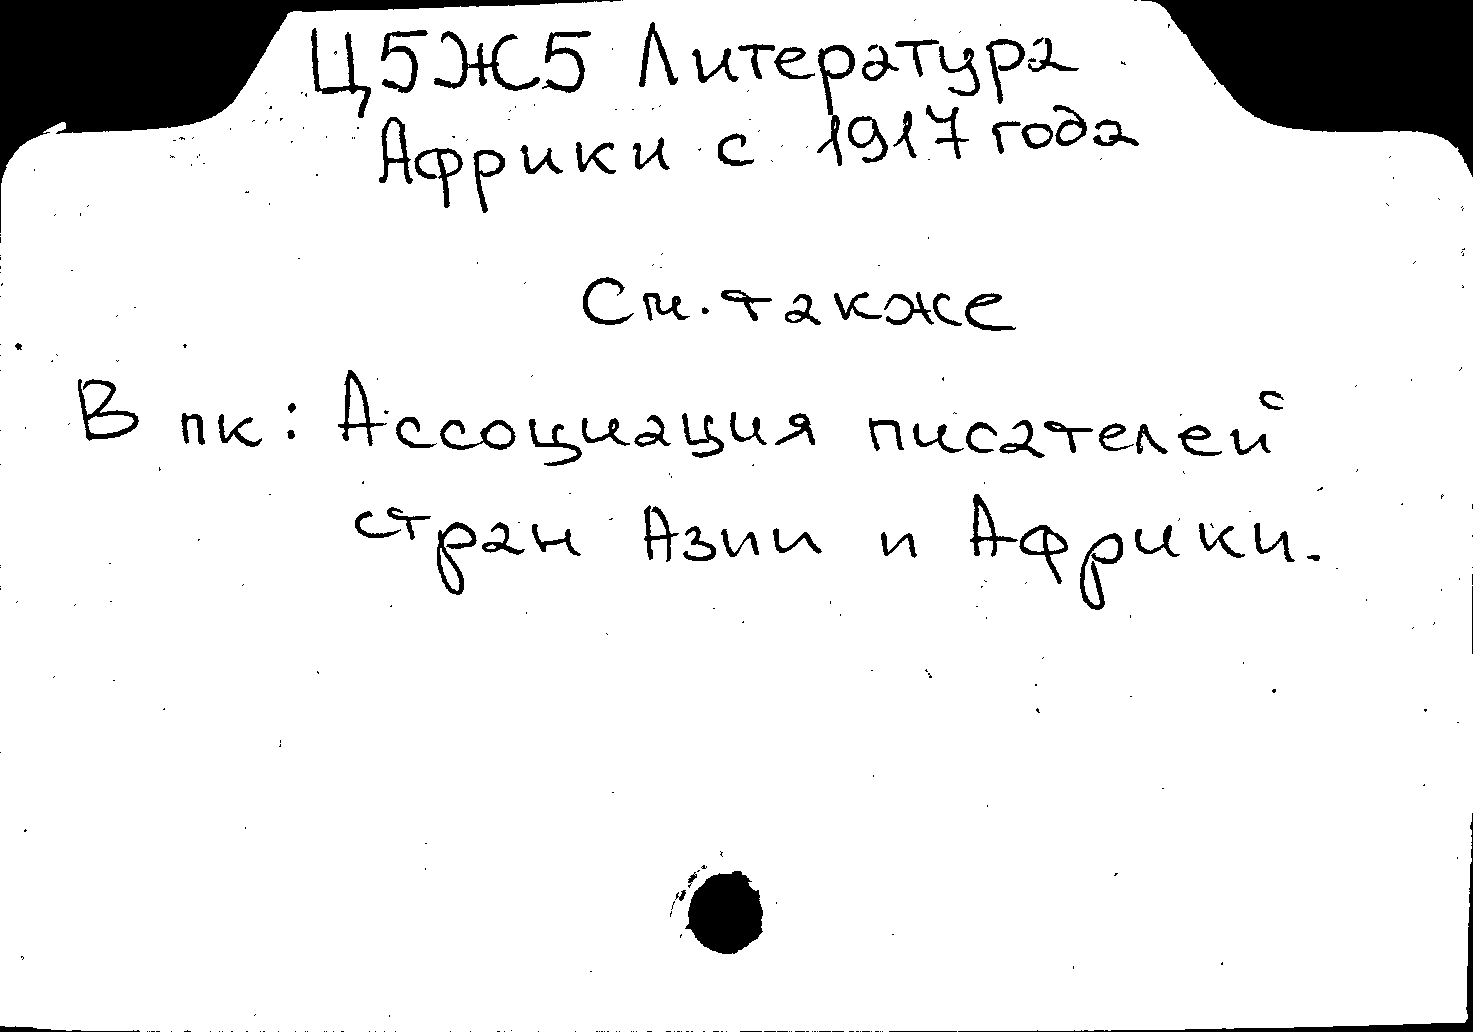 Ц5Ж5 Литература
Африки с 1917 года
См. также
В пк: Ассоциация писателей
стран Азии и Африки.